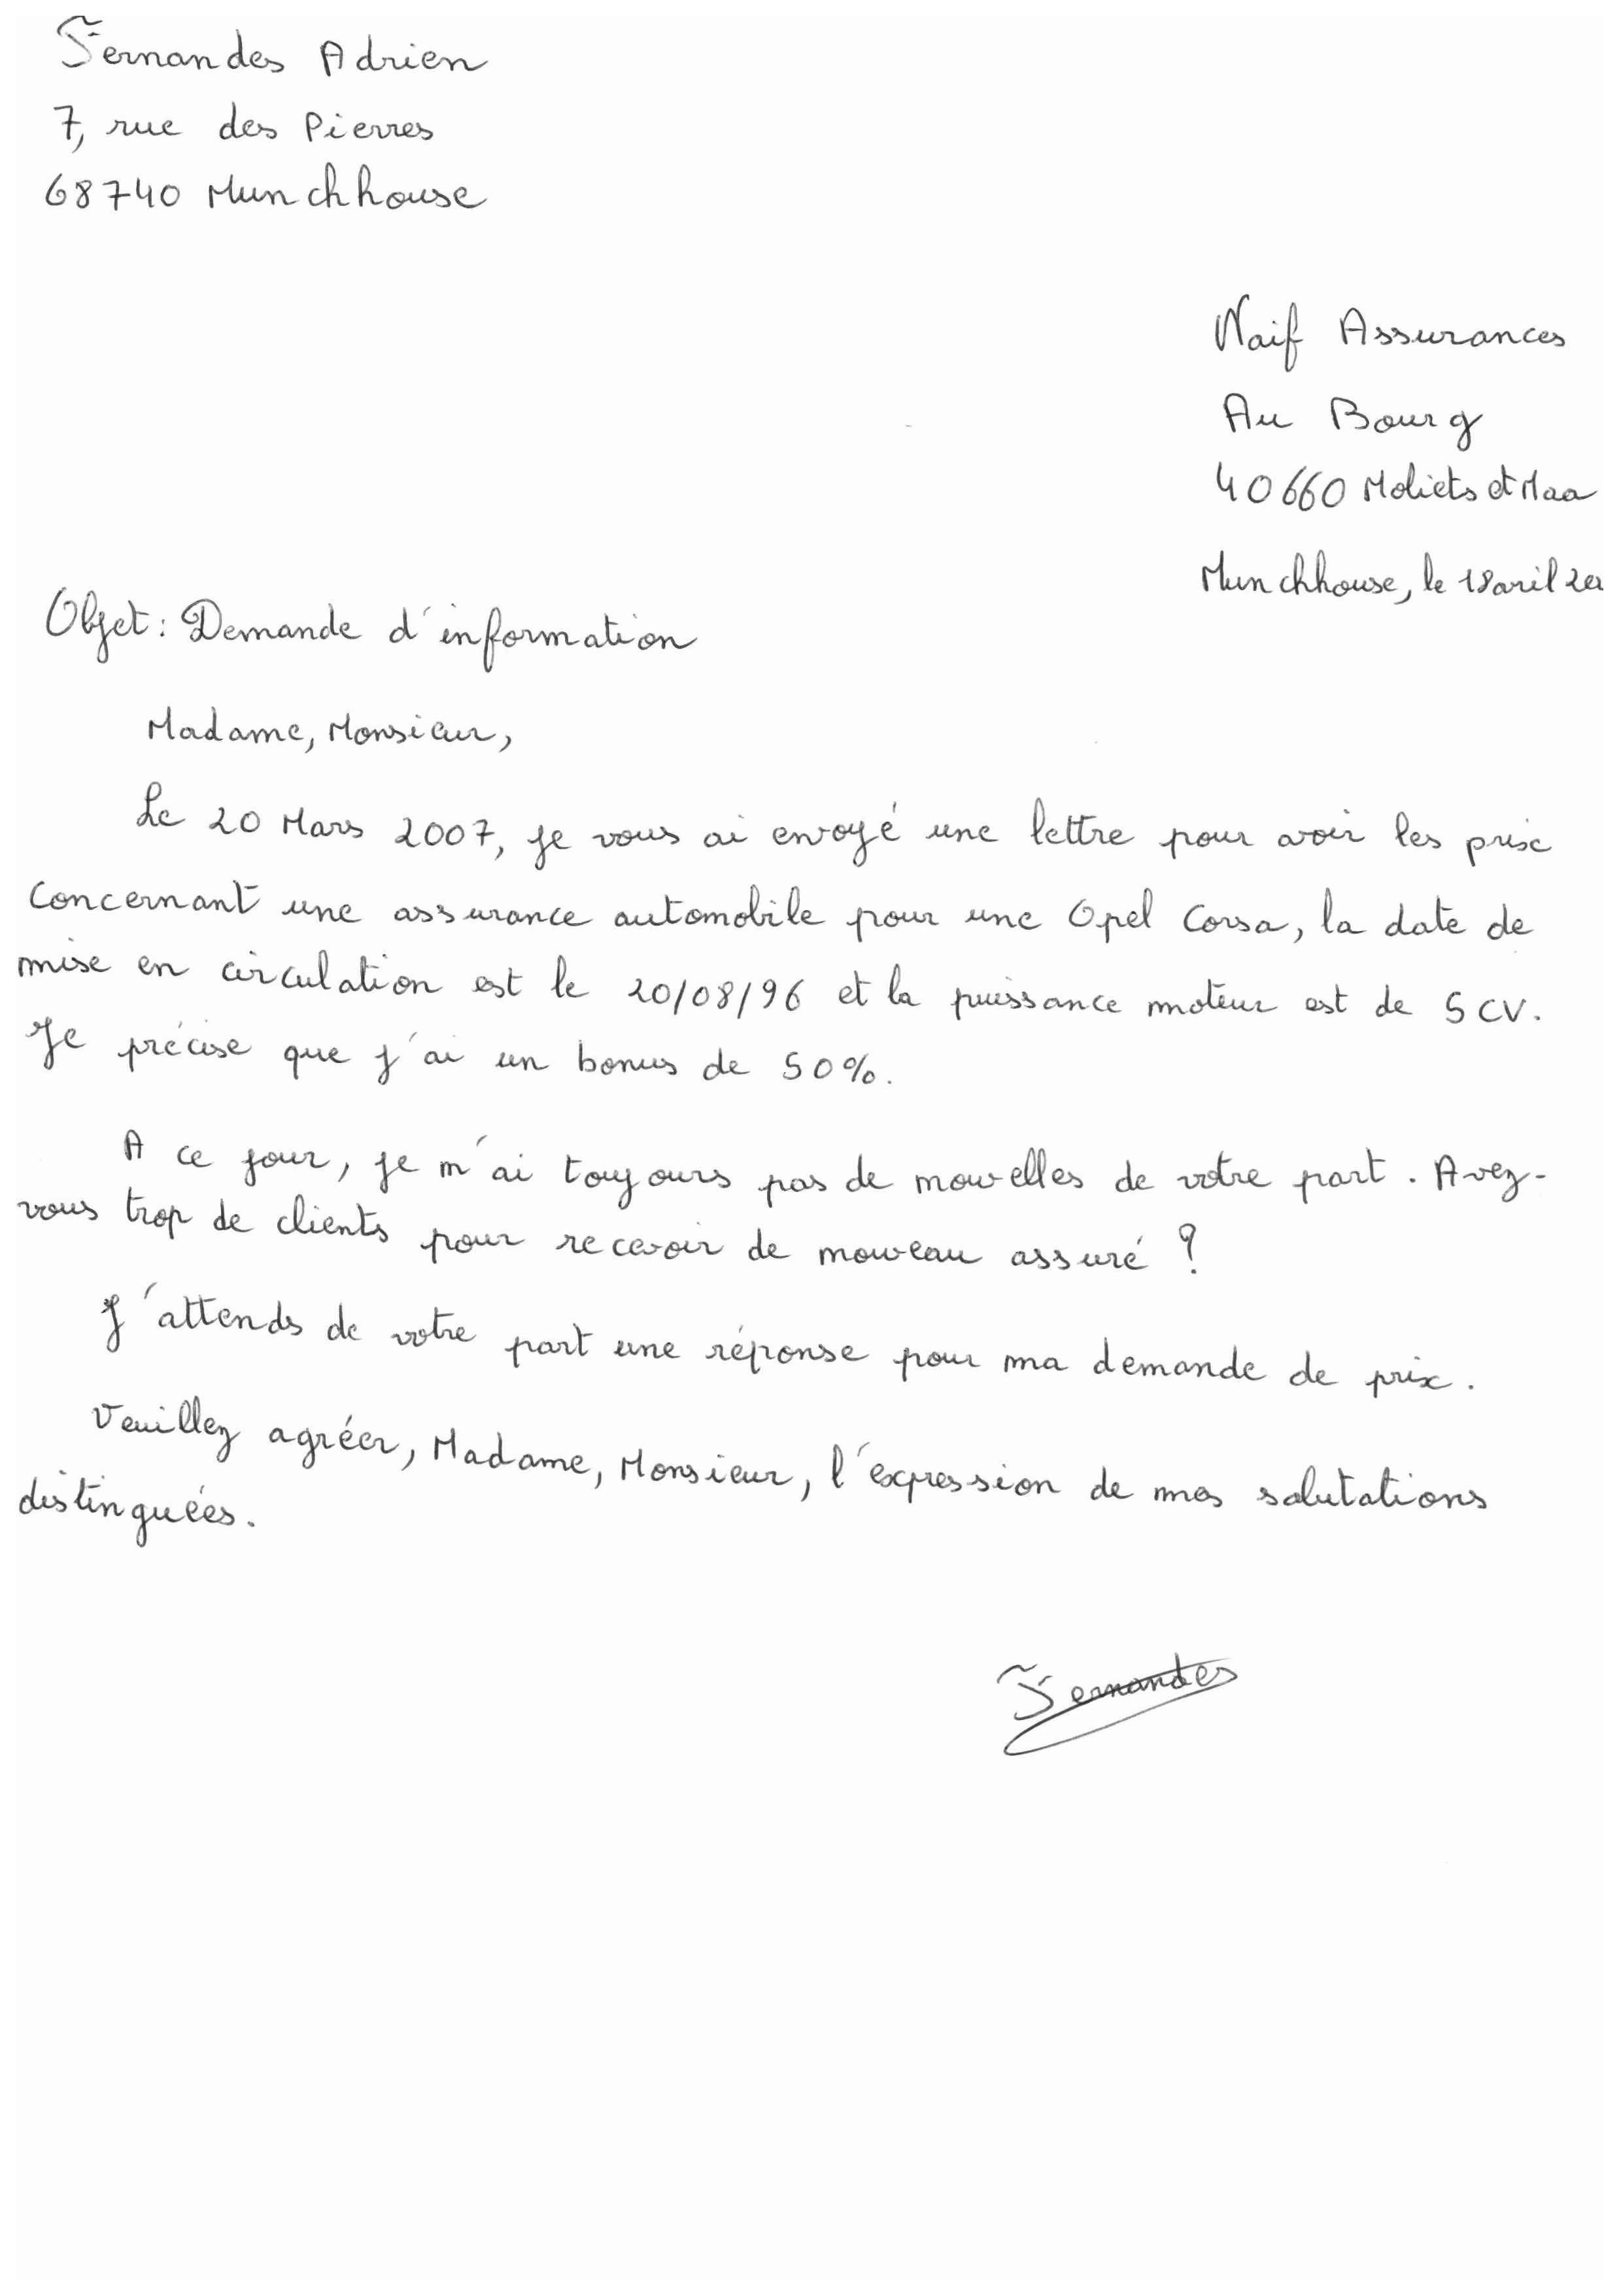 Fernandes Adrien
7, rue des Pierres
68740 Munchhouse
Naif Assurances
Au Bourg
40660 Moliets et Maa
Munchhouse, le 18 avril
Objet : Demande d'information
Madame, Monsieur,
Le 20 Mars 2007, je vous ai envoyé une lettre pour avoir les prix
concernant une assurance automobile pour une Opel Corsa, la date de
mise en circulation est le 20/08/96 et la puissance moteur est de 5 CV.
Je précise que j'ai un bonus de 50%.
A ce jour, je n'ai toujours pas de nouvelles de votre part. Avez-
vous trop de clients pour recevoir de nouveau assuré ?
J'attends de votre part une réponse pour ma demande de prix.
Veuillez agréer, Madame, Monsieur, l'expression de mes salutations
distinguées.
Fernandes